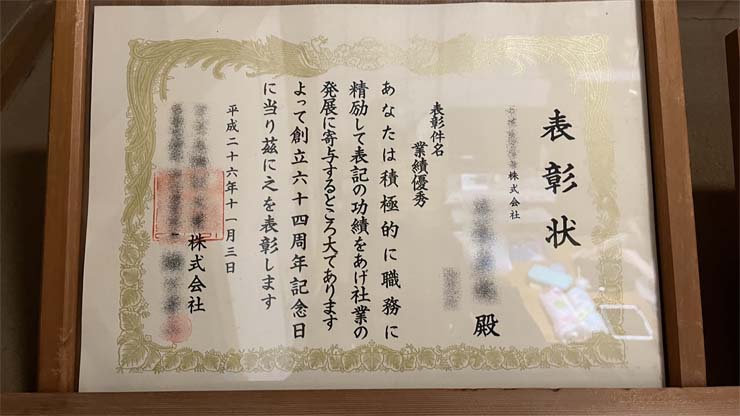 表彰状
株式会社
殿
表彰件名
業績優秀
あなたは積極的に職務に
精励して表記の功績をあげ社業の
発展に寄与するところ大であります
よって創立六十四周年記念日
に当り茲に之を表彰します
平成二十六年十一月三日
株式会社